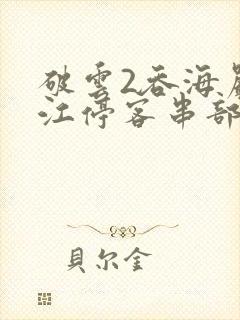 破雲2吞海
江停客串部
貝尔金